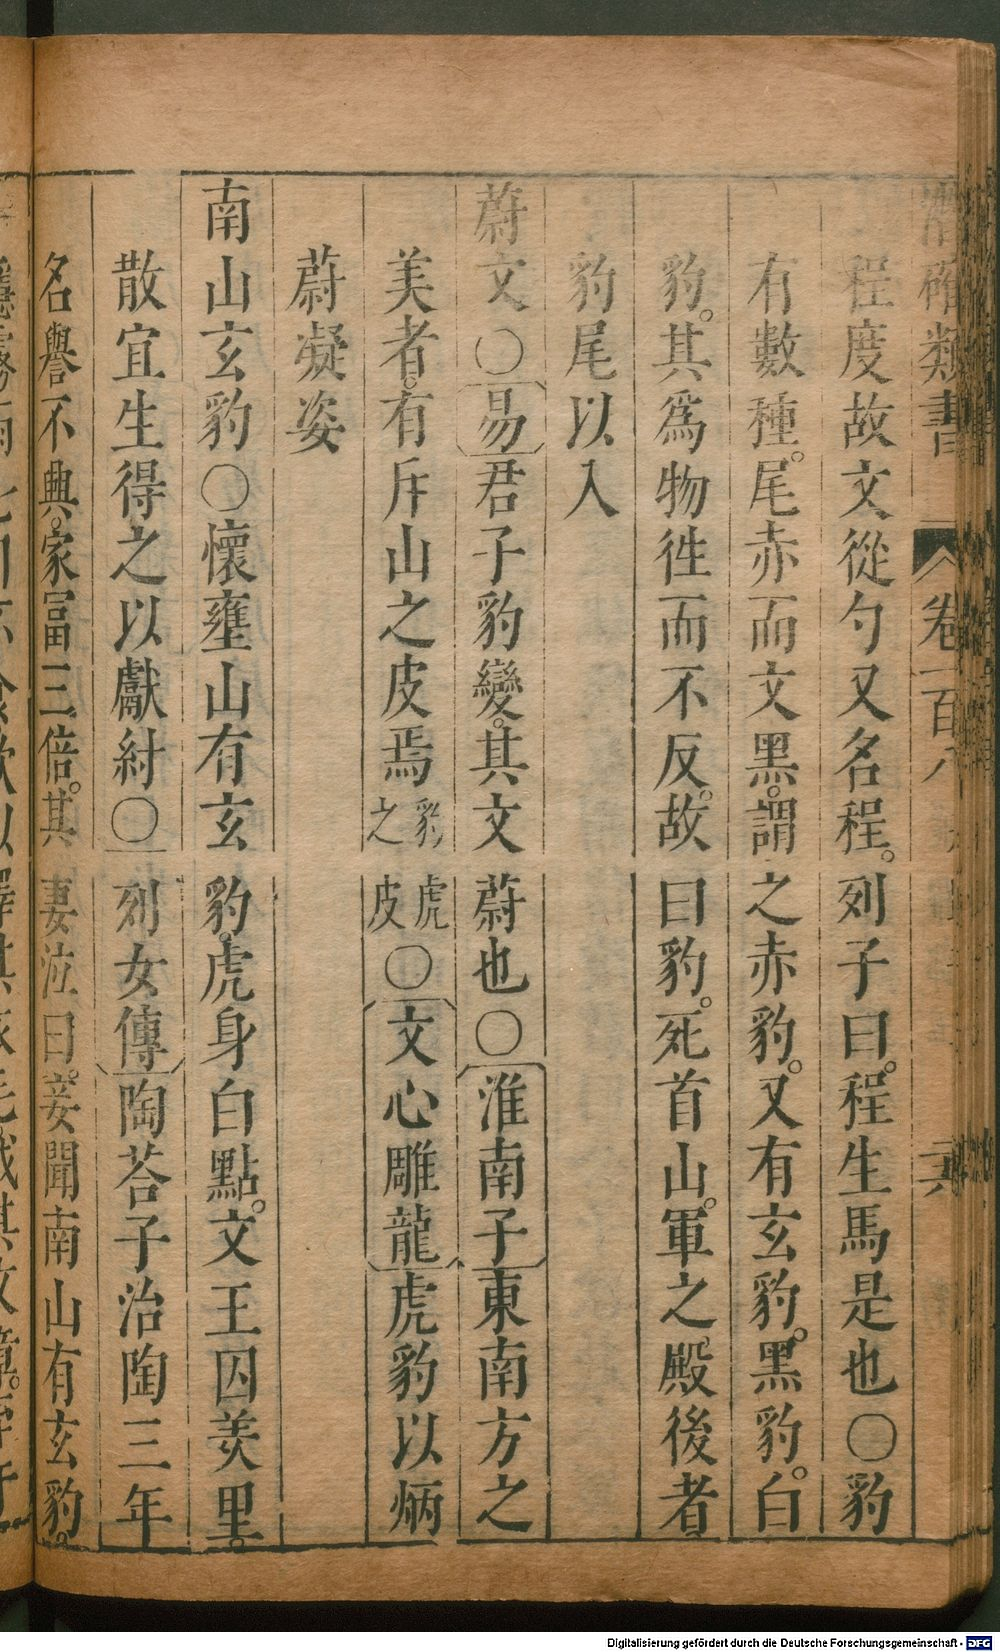 潛確類書 卷一百八
程度故文從勺又名程。列子曰。程生馬是也○豹
有數種。尾赤而文黑。謂之赤豹。又有玄豹。黑豹。白
豹。其爲物徃而不反。故曰豹。死首山。軍之殿後者
豹尾以入
蔚文○易君子豹變。其文蔚也○淮南子東南方之
美者。有斥山之皮焉豹虎之皮○文心雕龍虎豹以炳
蔚凝姿
南山玄豹○懷壅山有玄豹。虎身白點。文王囚羑里。
散宜生得之以獻紂○列女傳陶荅子治陶三年
名譽不興。家冨三倍。其妻泣曰。妾聞南山有玄豹。
Digitalisierung gefördert durch die Deutsche Forschungsgemeinschaft - DFG